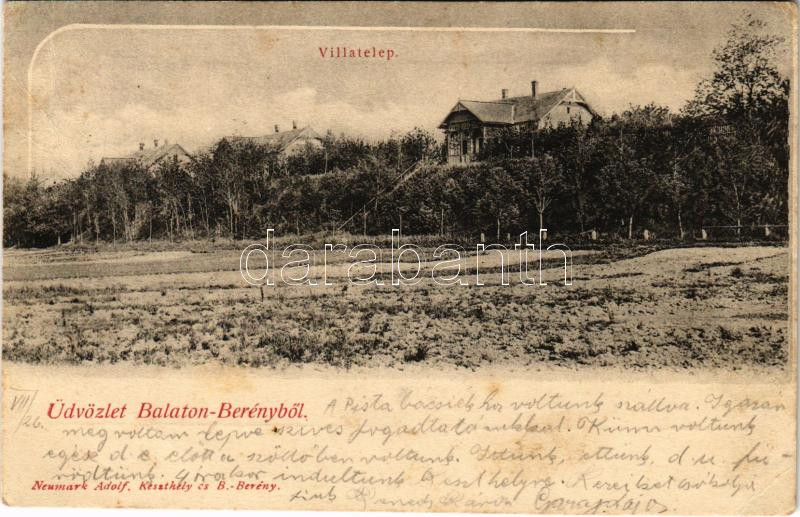 Villatelep.
darabanth
VII/26.
Üdvözlet Balaton-Berényből.
A Pista bácsiékhoz voltunk szállva. Igazán
meg voltam lepve szíves fogadtatásukkal. Künn voltunk
egész d. e. előtt a szőllőben voltunk. Ittunk, ettünk, d. u. fü-
rödtünk. 4 órakor indultunk Keszthelyre. Kezeiket csókolja
Neumark Adolf, Keszthely és B.-Berény.